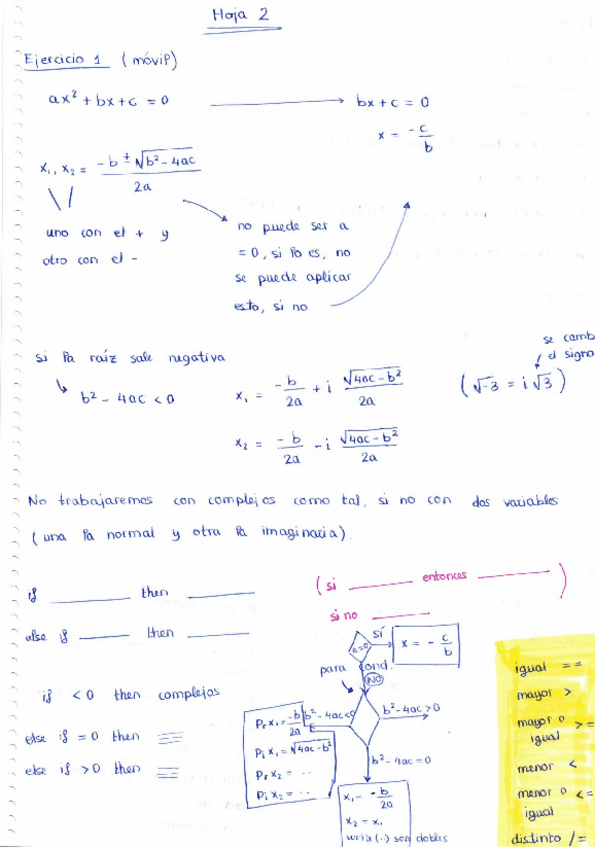 Hoja 2
Ejercicio 1 (móvil)
ax² + bx + c = 0 → bx + c = 0
x = -c/b
x₁, x₂ = (-b ± √(b² - 4ac))/2a
uno con el + y
otro con el -
no puede ser a
= 0, si lo es, no
se puede aplicar
esto, si no
si la raíz sale negativa
b² - 4ac < 0
x₁ = -b/2a + i √(4ac - b²)/2a
x₂ = -b/2a - i √(4ac - b²)/2a
se camb
el signo
(√-3 = i √3)
No trabajaremos con complejos como tal, si no con dos variables
(una la normal y otra la imaginaria).
if ______ then ______
else if ______ then ______
(si ______ entonces ______)
si no ______
if < 0 then complejos
else if = 0 then
else if > 0 then
a=0
sí
x = - c/b
para cond.
NO
b² - 4ac < 0
b² - 4ac > 0
b² - 4ac = 0
Pr x₁ = -b/2a
Pi x₁ = √(4ac - b²)
Pr x₂ = ...
Pi x₂ = ...
x₁ = -b/2a
x₂ = x₁
write(..) son dobles
igual ==
mayor >
mayor o
igual >=
menor <
menor o
igual <=
distinto /=